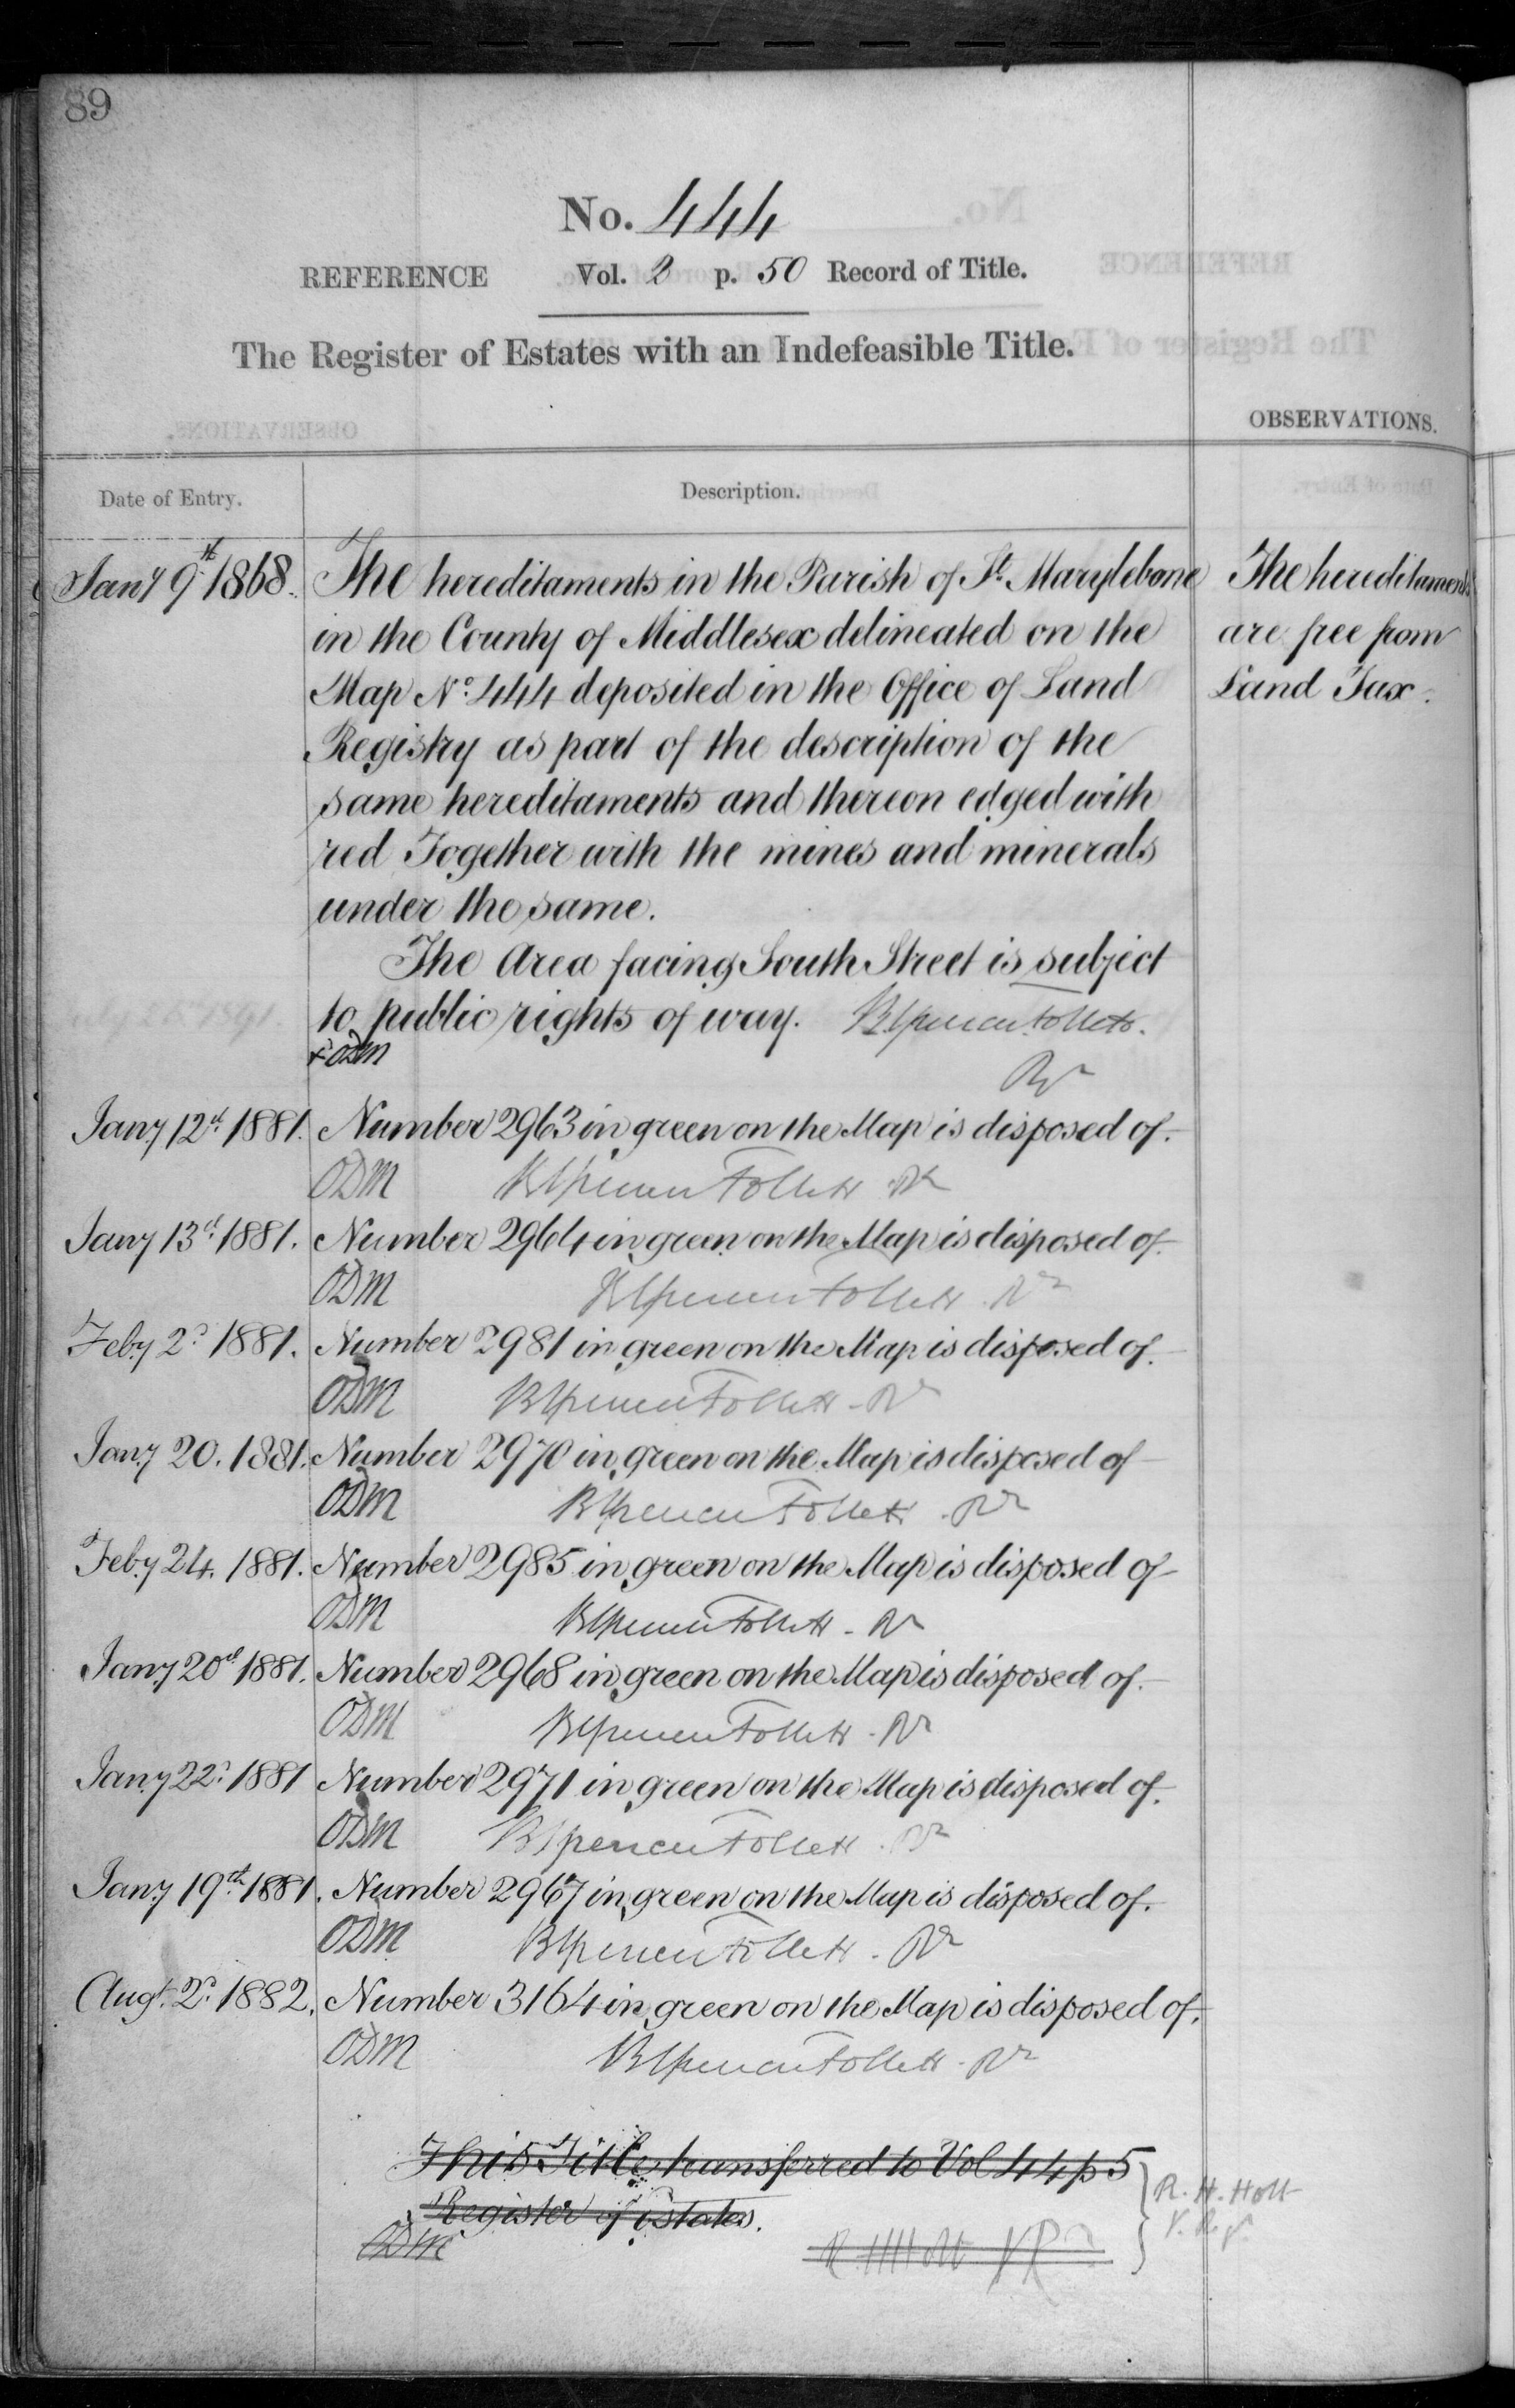 89
No. 444
REFERENCE Vol. 2 p. 50 Record of Title.
The Register of Estates with an Indefeasible Title.
OBSERVATIONS.
Date of Entry. Description.
Jany 9th 1868. The hereditaments in the Parish of St. Marylebone The hereditaments
in the County of Middlesex delineated on the are free from
Map No. 444 deposited in the Office of Land Land Tax.
Registry as part of the description of the
same hereditaments and thereon edged with
red Together with the mines and minerals
under the same.
The Area facing South Street is subject
to public rights of way. B Spencer Follett.
ODM
Rr
Jany 12th 1881. Number 2963 in green on the Map is disposed of.
ODM B Spencer Follett Rr
Jany 13th 1881. Number 2964 in green on the Map is disposed of.
ODM B Spencer Follett. Rr
Feby 2d 1881. Number 2981 in green on the Map is disposed of.
ODM B Spencer Follett - Rr
Jany 20. 1881. Number 2970 in green on the Map is disposed of
ODM B Spencer Follett. Rr
Feby 24. 1881. Number 2985 in green on the Map is disposed of
ODM B Spencer Follett - Rr
Jany 20th 1881. Number 2968 in green on the Map is disposed of.
ODM B Spencer Follett - Rr
Jany 22d 1881 Number 2971 in green on the Map is disposed of.
ODM B Spencer Follett. Rr
Jany 19th 1881. Number 2967 in green on the Map is disposed of.
ODM B Spencer Follett. Rr
Augt. 2d 1882. Number 3164 in green on the Map is disposed of.
ODM B Spencer Follett - Rr
This Title transferred to Vol 44 p 5
Register of Estates. R. H. Holt
ODM R H Holt VR V. Regr.